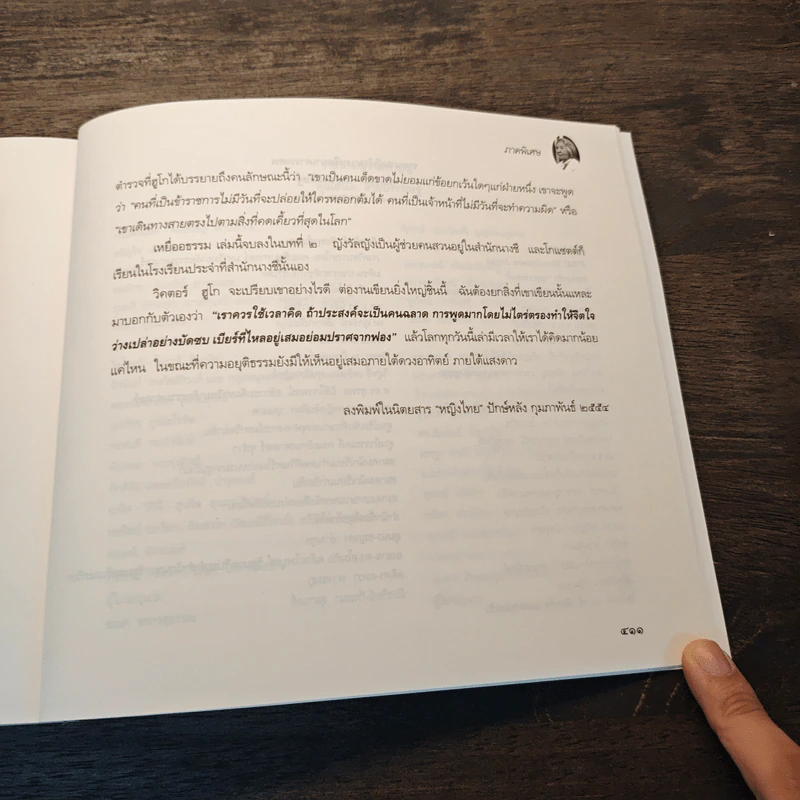 ภาคพิเศษ
ตำรวจที่ฮูโกได้บรรยายถึงคนลักษณะนี้ว่า "เขาเป็นคนเด็ดขาดไม่ยอมแก่ข้อยกเว้นใดๆแก่ฝ่ายหนึ่ง เขาจะพูด
ว่า "คนที่เป็นข้าราชการไม่มีวันที่จะปล่อยให้ใครหลอกต้มได้ คนที่เป็นเจ้าหน้าที่ไม่มีวันที่จะทำความผิด" หรือ
"เขาเดินทางสายตรงไปตามสิ่งที่คดเคี้ยวที่สุดในโลก"
เหยื่ออธรรม เล่มนี้จบลงในบทที่ ๒ ญังวัลญังเป็นผู้ช่วยคนสวนอยู่ในสำนักนางชี และโกแซตต์ก็
เรียนในโรงเรียนประจำที่สำนักนางชีนั้นเอง
วิคตอร์ ฮูโก จะเปรียบเขาอย่างไรดี ต่องานเขียนยิ่งใหญ่ชิ้นนี้ ฉันต้องยกสิ่งที่เขาเขียนนั้นแหละ
มาบอกกับตัวเองว่า "เราควรใช้เวลาคิด ถ้าประสงค์จะเป็นคนฉลาด การพูดมากโดยไม่ไตร่ตรองทำให้จิตใจ
ว่างเปล่าอย่างบัดซบ เบียร์ที่ไหลอยู่เสมอย่อมปราศจากฟอง" แล้วโลกทุกวันนี้เล่ามีเวลาให้เราได้คิดมากน้อย
แค่ไหน ในขณะที่ความอยุติธรรมยังมีให้เห็นอยู่เสมอภายใต้ดวงอาทิตย์ ภายใต้แสงดาว
ลงพิมพ์ในนิตยสาร "หญิงไทย" ปักษ์หลัง กุมภาพันธ์ ๒๕๕๔
๔๑๑